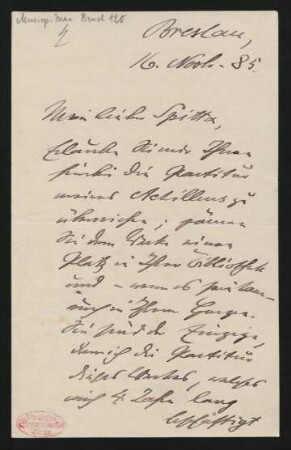 Mus. ep. Max Bruch 126
Breslau,
16. Novb. 85.
Mein lieber Spitta,
Erlauben Sie mir Ihnen
hierbei die Partitur
meines Achilleus zu
überreichen; gönnen
Sie dem Werke einen
Platz in Ihrer Bibliothek
und – wenn es sein kann –
auch in Ihrem Herzen.
Sie sind der Einzige,
dem ich die Partitur
dieses Werkes, welches
mich 4 Jahre lang
beschäftigt